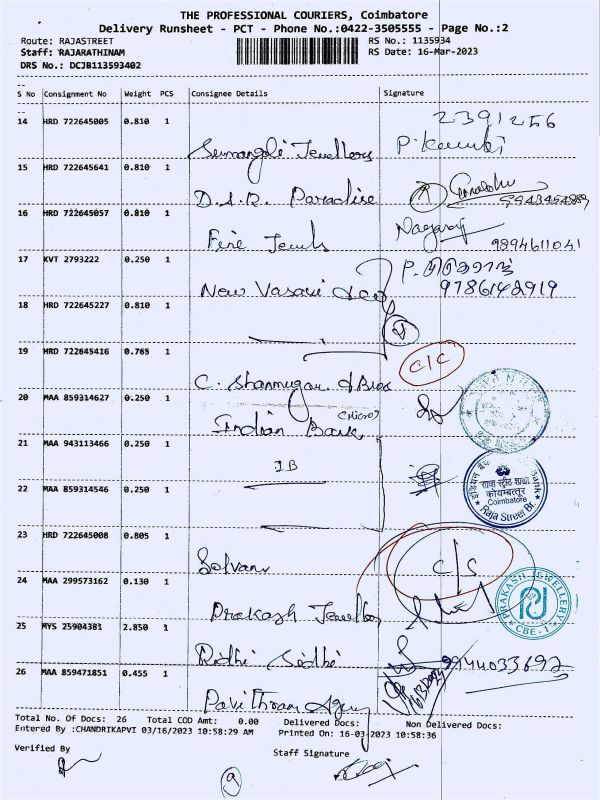 THE PROFESSIONAL COURIERS, Coimbatore
Delivery Runsheet - PCT - Phone No.:0422-3505555 - Page No.:2
Route: RAJASTREET
RS No.: 1135934
Staff: RAJARATHINAM
RS Date: 16-Mar-2023
DRS No.: DCJB113593402
S No Consignment No Weight PCS Consignee Details Signature
14 HRD 722645005 0.810 1
2391256
Sumangali Jewellers
15 HRD 722645641 0.810 1
D.S.R. Paradise
16 HRD 722645057 0.810 1
Nagaraj
Fire Jewels 9894611041
17 KVT 2793222 0.250 1
New Vasavi 9786142919
18 HRD 722645227 0.810 1
19 HRD 722645416 0.765 1
C/C
C. Shanmugam & Bros
20 MAA 859314627 0.250 1
(Micro)
Indian Bank
21 MAA 943113466 0.250 1
IB
22 MAA 859314546 0.250 1
इंडियन बैंक
राजा स्ट्रीट शाखा
कोयम्बत्तूर
Coimbatore
Raja Street Br.
23 HRD 722645008 0.805 1
C/C
Selvam
24 MAA 299573162 0.130 1
PRAKASH JEWELLERY
CBE-1
Prakash Jewellery
25 MYS 25904381 2.850 1
Ridhi Sidhi 9944033692
26 MAA 859471851 0.455 1
16/3/2023
Pavithram Agency
Total No. Of Docs: 26 Total COD Amt: 0.00 Delivered Docs: Non Delivered Docs:
Entered By :CHANDRIKAPVI 03/16/2023 10:58:29 AM Printed On: 16-03-2023 10:58:36
Verified By
Staff Signature
9